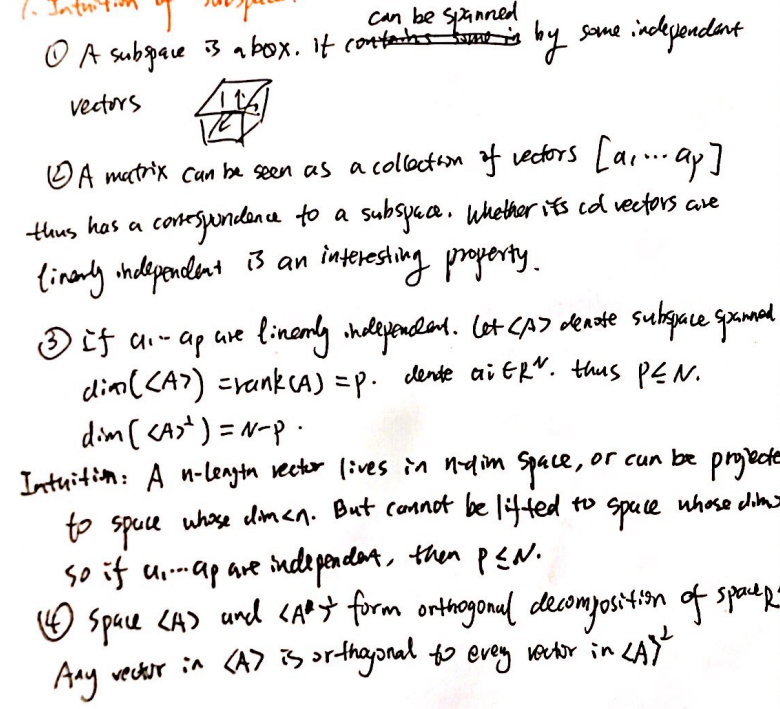 1. Intuition of subspace
① A subspace is a box. it can be spanned by some independent
vectors
② A matrix can be seen as a collection of vectors [a₁ ... ap]
thus has a correspondence to a subspace. Whether its col vectors are
linearly independent is an interesting property.
③ if a₁ ... ap are linearly independent. Let <A> denote subspace spanned
dim(<A>) = rank(A) = p. denote ai ∈ R^N. thus p ≤ N.
dim(<A>^⊥) = N-p.
Intuition: A n-length vector lives in n-dim space, or can be projecte
to space whose dim<n. But cannot be lifted to space whose dim>
so if a₁ ... ap are independent, then p ≤ N.
④ Space <A> and <A>^⊥ form orthogonal decomposition of space R
Any vector in <A> is orthogonal to every vector in <A>^⊥